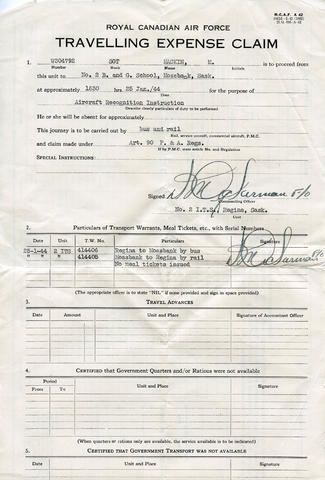 R.C.A.F. A 42
ROYAL CANADIAN AIR FORCE
TRAVELLING EXPENSE CLAIM
1. W304792 SGT MACKIN, M. is to proceed from
Number Rank Name Initials
this unit to No. 2 B. and G. School, Mossbank, Sask.
at approximately 1630 hrs 25 Jan./44 for the purpose of
Date
Aircraft Recognition Instruction
(Describe clearly particulars of duty to be performed)
He or she will be absent for approximately
This journey is to be carried out by bus and rail
Rail, service aircraft, commercial aircraft, P.M.C.
and claim made under Art. 90 F. & A. Regs.
If by P.M.C. state article No. and Regulation
SPECIAL INSTRUCTIONS:
Signed F/O
Commanding Officer
No. 2 I.T.S., Regina, Sask.
Unit
2. Particulars of Transport Warrants, Meal Tickets, etc., with Serial Numbers
Date Unit T.W. No. Particulars Signature
25-1-44 2 ITS 414404 Regina to Mossbank by bus
" " " 414405 Mossbank to Regina by rail
No meal tickets issued
F/O
(The appropriate officer is to state "NIL" if none provided and sign in space provided)
3. TRAVEL ADVANCES
Date Amount Unit and Place Signature of Accountant Officer
4. CERTIFIED THAT GOVERNMENT QUARTERS AND/OR RATIONS WERE NOT AVAILABLE
Period
From To Unit and Place Signature
(When quarters or rations only are available, the service available is to be indicated)
5. CERTIFIED THAT GOVERNMENT TRANSPORT WAS NOT AVAILABLE
Date Unit and Place Signature